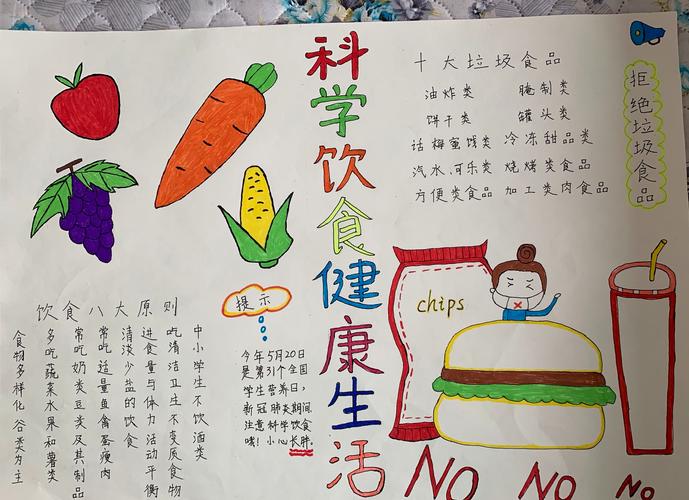 科学饮食健康生活
十大垃圾食品
油炸类 腌制类
饼干类 罐头类
话梅蜜饯类 冷冻甜品类
汽水、可乐类 烧烤类食品
方便类食品 加工类肉食品
拒绝垃圾食品
饮食八大原则
食物多样化谷类为主
多吃蔬菜水果和薯类
常吃奶类豆类及其制品
常吃适量鱼禽蛋瘦肉
清淡少盐的饮食
进食量与体力活动平衡
吃清洁卫生不变质食物
中小学生不饮酒类
提示
今年5月20日
是第31个全国
学生营养日，
新冠肺炎期间
注意科学饮食
哦！小心长胖。
chips
NO NO NO